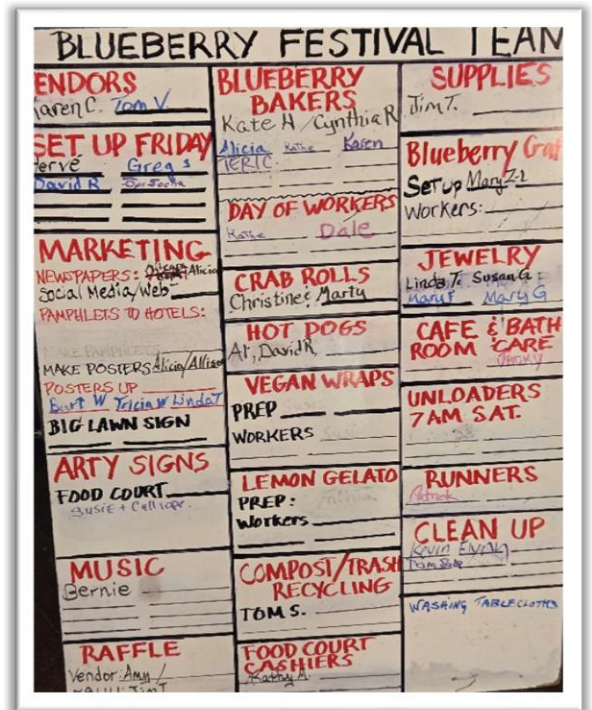 BLUEBERRY FESTIVAL TEAM
ENDORS
aren C. Tom V.
SET UP FRIDAY
erve Greg S
David R
MARKETING
NEWSPAPERS: Alicia
Social Media/Web
PAMPHLETS TO HOTELS:
MAKE PAMPHLETS
MAKE POSTERS Alicia/Allison
POSTERS UP
Burt W Tricia W Linda T
BIG LAWN SIGN
ARTY SIGNS
FOOD COURT
Susie + Calliope
MUSIC
Bernie
RAFFLE
Vendor: Amy /
Jim T
BLUEBERRY
BAKERS
Kate H / Cynthia R
Alicia Kathe Karen
TERIC
DAY OF WORKERS
Kathe Dale
CRAB ROLLS
Christine & Marty
HOT DOGS
Al, David R
VEGAN WRAPS
PREP
WORKERS
LEMON GELATO
PREP:
Workers
COMPOST/TRASH
RECYCLING
TOM S.
FOOD COURT
CASHIERS
Kathy M.
SUPPLIES
Jim T.
Blueberry Gra
SET up Mary Z-L
Workers:
JEWELRY
Linda T. Susan G.
Mary F Mary G
CAFE & BATH
ROOM CARE
UNLOADERS
7 AM SAT.
RUNNERS
Patrick
CLEAN UP
Kevin
WASHING TABLECLOTHS